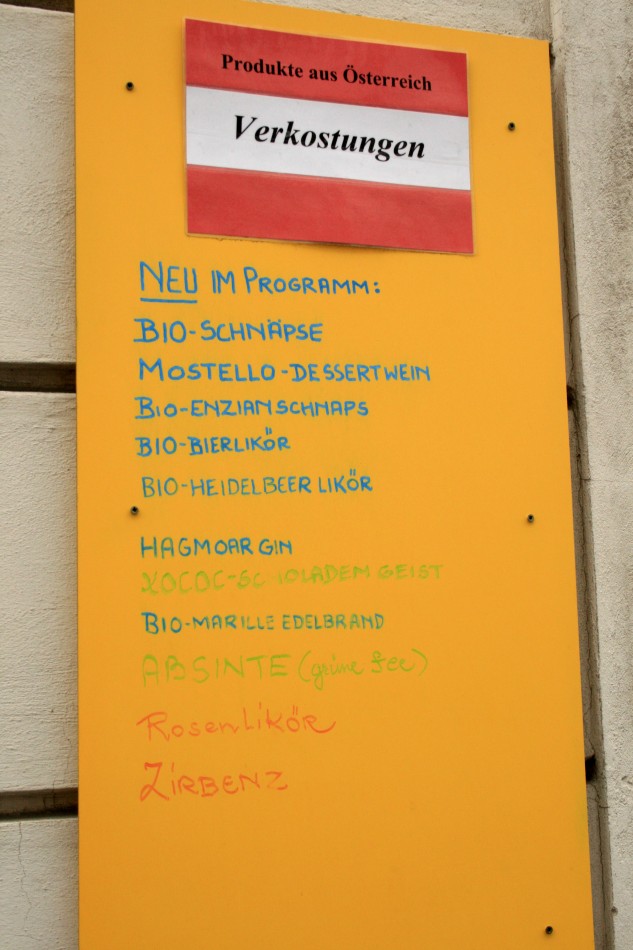 Produkte aus Österreich
Verkostungen
NEU IM PROGRAMM:
BIO-SCHNÄPSE
MOSTELLO-DESSERTWEIN
BIO-ENZIANSCHNAPS
BIO-BIERLIKÖR
BIO-HEIDELBEER LIKÖR
HAGMOAR GIN
XOCOC-SCHOLADEM GEIST
BIO-MARILLE EDELBRAND
ABSINTE (grüne Fee)
ROSENLIKÖR
ZIRBENZ